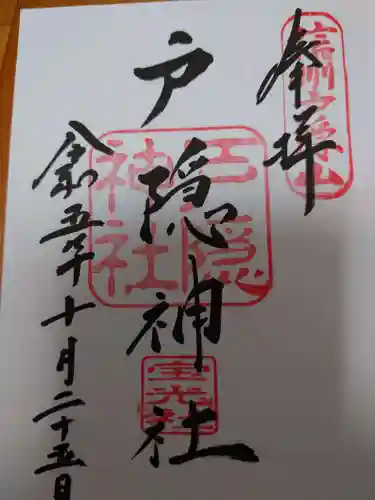 奉拝
信州戸隠山
戸隠神社
戸隠
神社
宝光社
令和五年十月二十五日